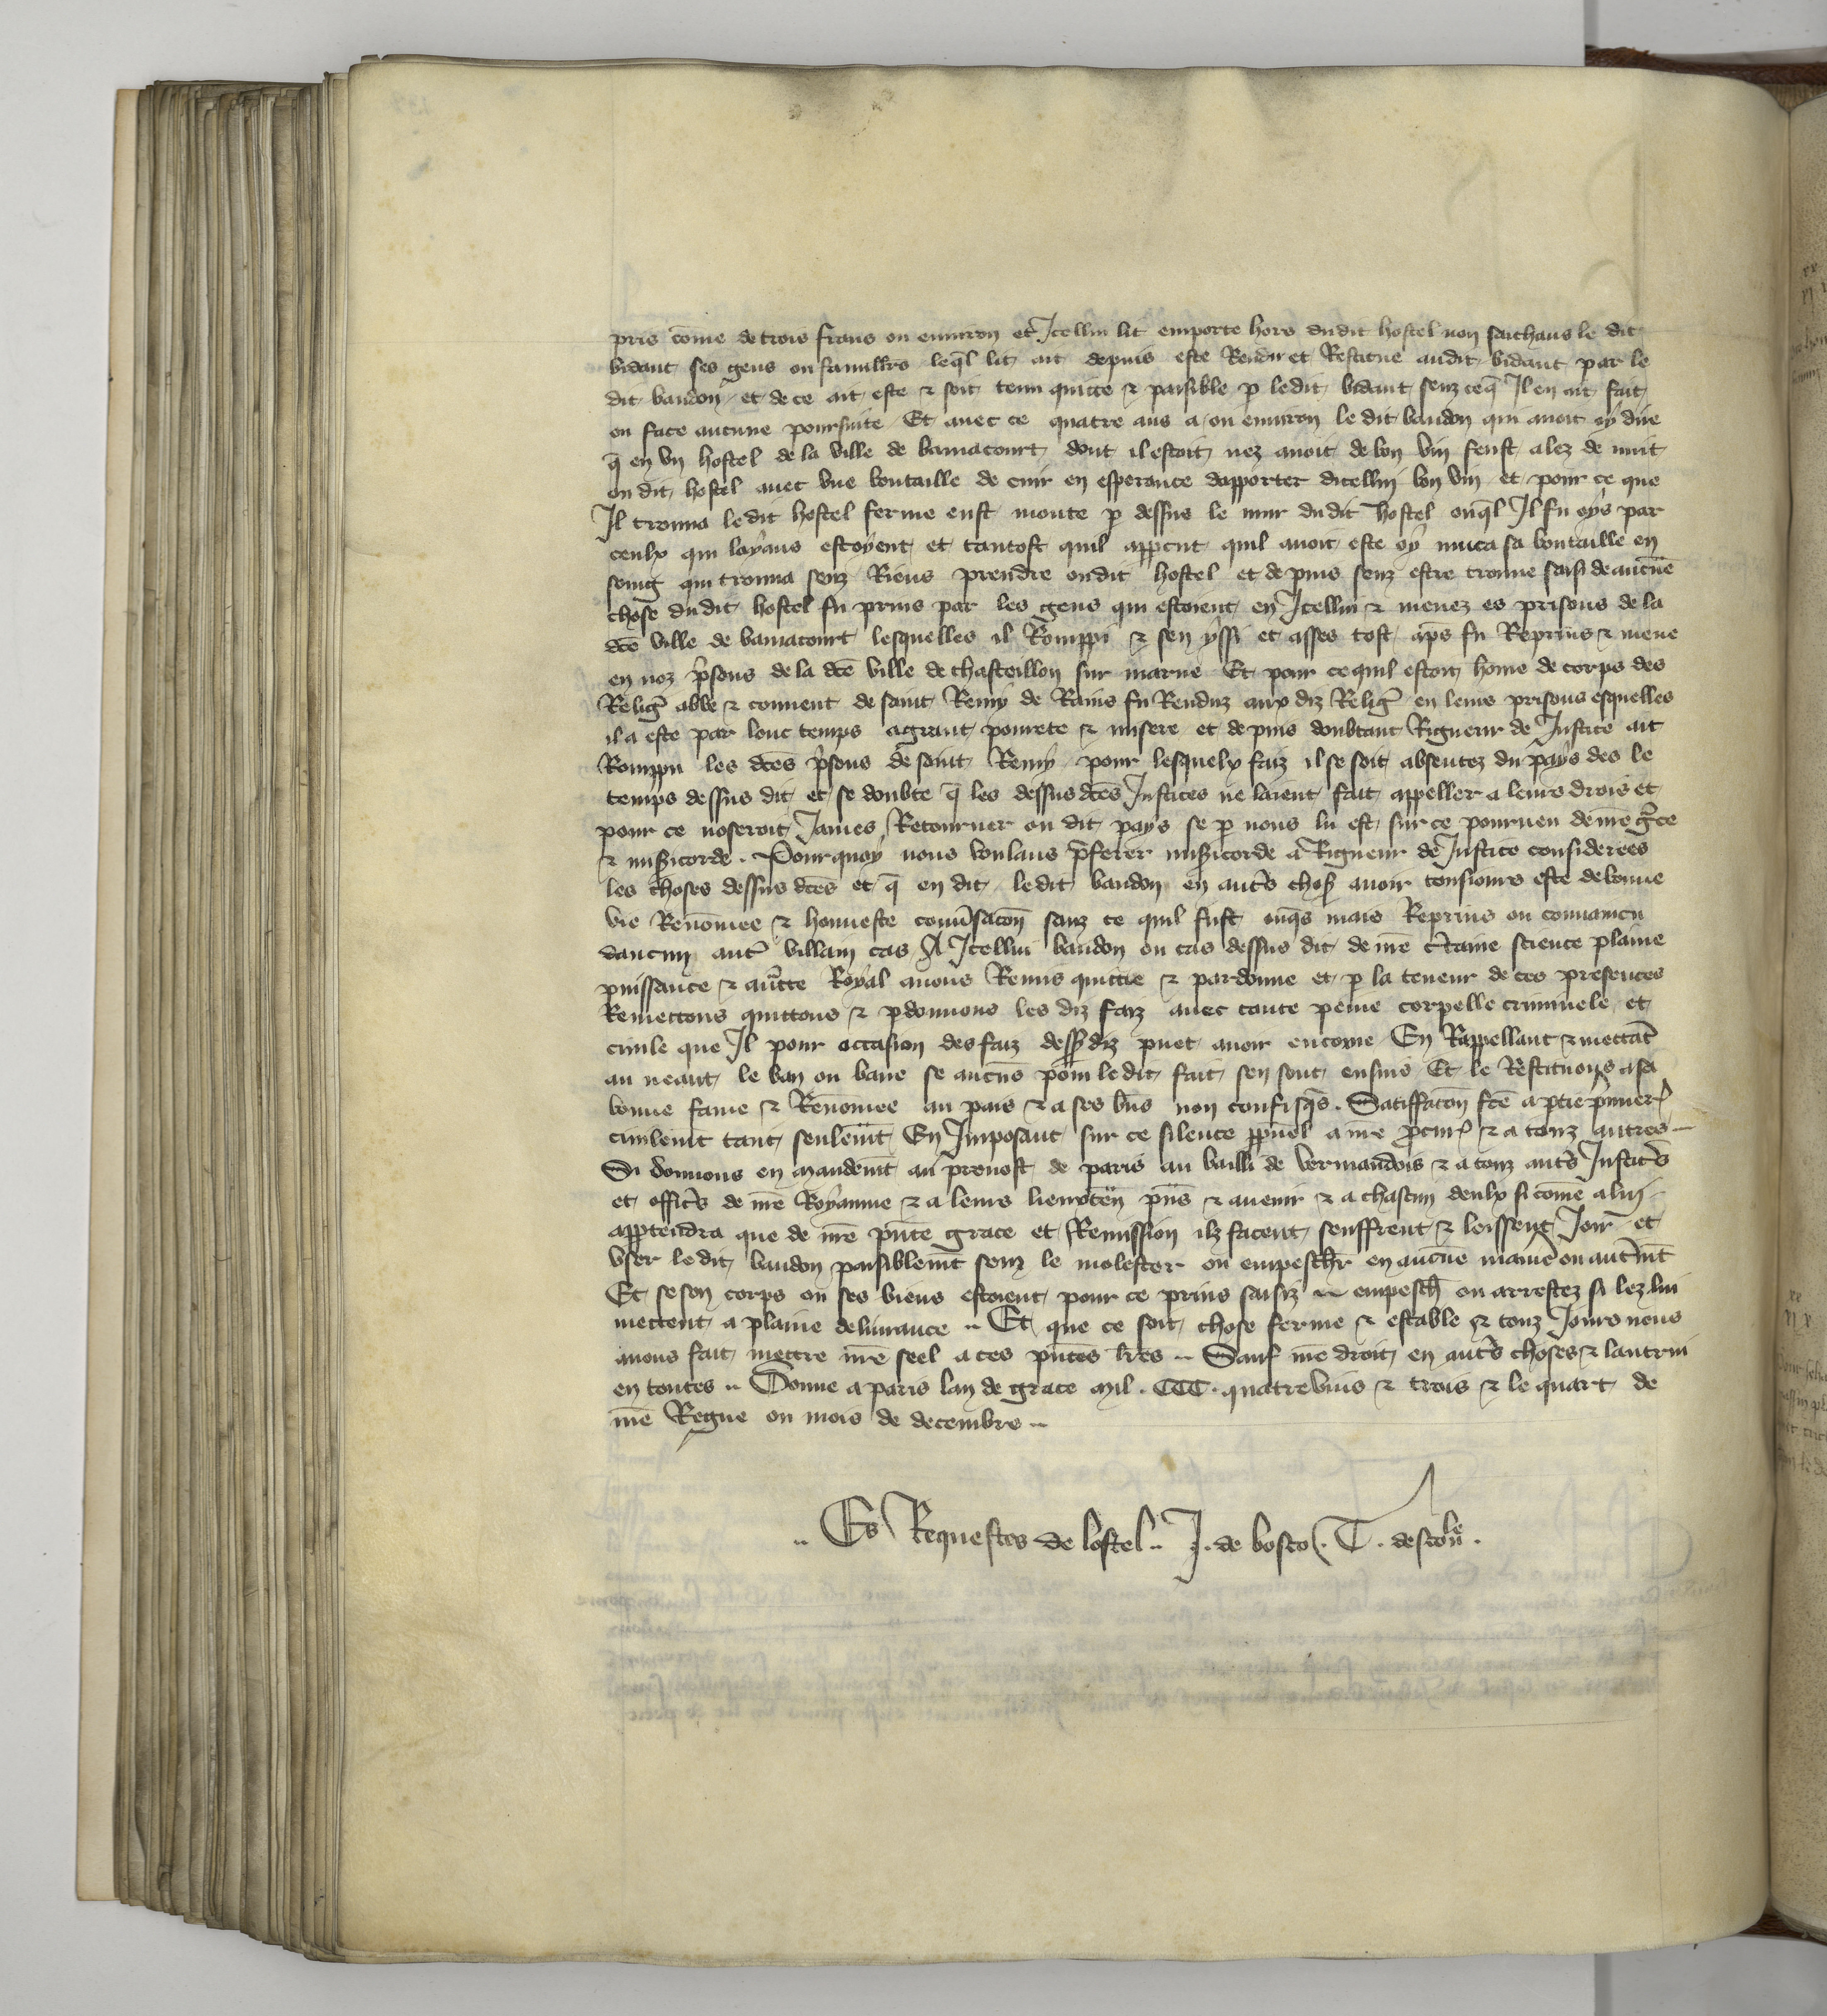 pris cōme de trois frans ou environ et Icellui lit emporte hors dudit hostel non saichans le dit
bidaut ses gens ou famillīrs leq̄l lit ait depuis este Rendu et Restitue audit bidaut par le
dit baudon et de ce ait este & soit tenu quitte & paisible p ledit bidaut senz ceq̄ Il en ait fait
ou face aucune poursuite Et avec ce quatre ans a ou environ le dit baudon qui avoit oy dire
q̄ en un hostel de la ville de damacourt dont il estoit nez avoit de bon vin feust alez de nuit
ou dit hostel avec une boutaille de cuir en esperance dapporter dicellui bon vin et pour ce que
Il trouva ledit hostel ferme eust monte p dessus le mur dudit hostel ouq̄l Il fu oys par
ceulx qui layans estoyent et tantost quil apperçut quil avoit este oy muca sa boutaille en
qui trouva senz Riens prendre oudit hostel et depuis senz estre trouve saisi de aucūne
chose dudit hostel fu prins par les gens qui estoient en Icellui & menez es prisons de la
dcē ville de damacourt lesquelles il Romppi & sen yssi et asses tost ap̄s fu Reprins & mene
en noz p̄sons de la dcē ville de chasteillon sur marne Et pour ce quil estoit home de corps des
Relig̃ abbe & couvent de saint Remy de Rains fu Renduz aux diz Relig̃ en leurs prisons esquelles
il a este par lonc temps a grant povrete & misere et depuis doubtant Rigueur de Justice ait
Romppu les dcēs p̄sons de saint Remy pour lesquelx faiz il se soit absentez du pays des le
temps dessus dit et se doubte q̄ les dessus dcēs Justices ne laient fait appeller a leurs drois et
pour ce noseroit James Retourner ou dit pays se p nous lui est sur ce pourveu de nr̄e gr̄ce
& mis̄icorde . Pourquoy nous voulans p̄ferer mis̄icorde a Rigueur de Justice considerees
les choses dessus dcēs et q̄ en dit ledit baudon en autr̄s choses avoir tousiours este de bonne
vie Renōmee & honneste conv̄sacōn sanz ce quil fust onq̄s mais Reprins ou convaincu
daucun autr̄ villain cas A Icellui baudon ou cas dessus dit de nr̄e c̄taine science plaine
puissance & auctte Royal avons Remis quitte & pardonne et p la teneur de ces presentes
Remettons quittons & pdonnons les diz faiz avec toute peine corpelle criminele et
civile que Il pour occasion des faiz dess̄ diz puet avoir encorue En Rappellant & mettāt
au neant le ban ou bans se aucūns pour ledit fait sen sont ensuis Et le Restituons a sa
bonne fame & Renōmee au pais & a ses bn̄s non confisq̄s . Satiffacōn fcē a ptie p̄miēr
civilemt tant seulemt En Imposant sur ce silence ppuel a nr̄e pcur & a touz autres
Si donnons en mandemt au prevost de paris au bailli de vermandois & a touz autr̄s Justic̄s
et offic̄s de nr̄e Royaume & a leurs lieuxten̄ pn̄s & avenir & a chascun deulx si cōme a lui
apptendra que de nr̄e pn̄te grace et Remission ilz facent seuffrent & leissent Joir et
user ledit baudon paisiblemt senz le molester ou empeschr̄ en aucūne manie ou autremt
Et se son corps ou ses biens estoient pour ce prins saisiz empeschez ou arrestez si lez lui
mettent a plaine delivrance .. Et que ce soit chose ferme & estable & touz Jours nous
avons fait mettre nr̄e seel a ces pn̄tes lr̄es .. Sauf nr̄e droit en autr̄s choses & lautrui
en toutes .. Donne a paris lan de grace mil . CCC . quatrevins & trois & le quart de
nr̄e Regne ou mois de decembre ..
.. Es Requestes de lostel .. J . de bosco . T .